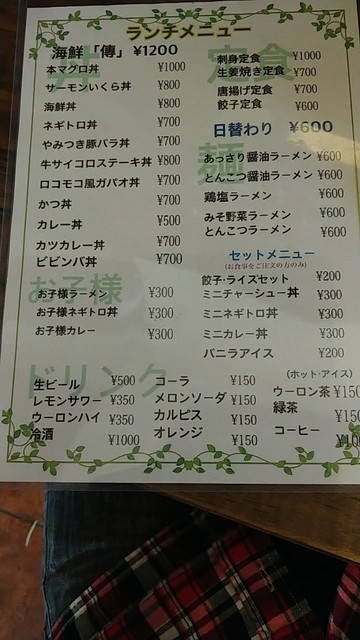 ランチメニュー
海鮮「傳」 ¥1200
本マグロ丼 ¥1000
サーモンいくら丼 ¥800
海鮮丼 ¥800
ネギトロ丼 ¥700
やみつき豚バラ丼 ¥700
牛サイコロステーキ丼 ¥800
ロコモコ風ガパオ丼 ¥700
かつ丼 ¥700
カレー丼 ¥500
カツカレー丼 ¥700
ビビンバ丼 ¥700
お子様
お子様ラーメン ¥300
お子様ネギトロ丼 ¥300
お子様カレー ¥300
定食
刺身定食 ¥1000
生姜焼き定食 ¥700
唐揚げ定食 ¥700
餃子定食 ¥600
日替わり ¥600
麺
あっさり醤油ラーメン ¥600
とんこつ醤油ラーメン ¥600
鶏塩ラーメン ¥600
みそ野菜ラーメン ¥600
とんこつラーメン ¥600
セットメニュー
(お食事をご注文の方のみ)
餃子・ライスセット ¥200
ミニチャーシュー丼 ¥300
ミニネギトロ丼 ¥300
ミニカレー丼 ¥300
バニラアイス ¥200
ドリンク
生ビール ¥500
レモンサワー ¥350
ウーロンハイ ¥350
冷酒 ¥1000
コーラ ¥150
メロンソーダ ¥150
カルピス ¥150
オレンジ ¥150
(ホット・アイス)
ウーロン茶 ¥150
緑茶 ¥150
コーヒー